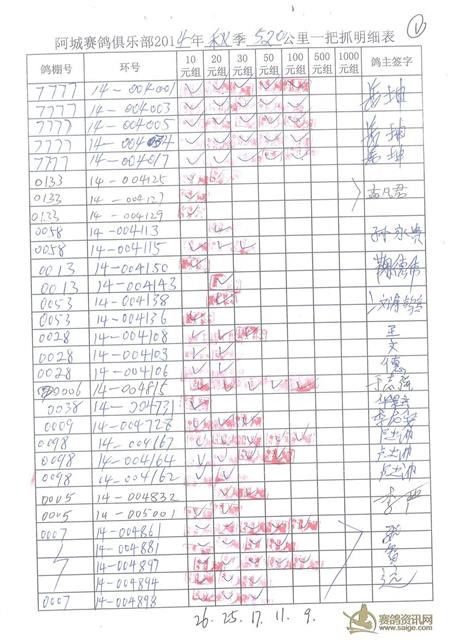 ①
阿城赛鸽俱乐部2014年秋季520公里一把抓明细表
鸽棚号 环号 10元组 20元组 30元组 50元组 100元组 500元组 1000元组 鸽主签字
7777 14-004001 ✓ ✓ ✓ ✓ ✓
7777 14-004003 ✓ ✓ ✓ ✓ ✓
7777 14-004005 ✓ ✓ ✓ ✓ ✓
7777 ✓ ✓ ✓ ✓ ✓
7777 14-004017 ✓ ✓ ✓ ✓ ✓
0133 14-004125 ✓
0133 14-004127 ✓ 高凡君
0133 14-004129 ✓
0058 14-004113 ✓
0058 14-004115 ✓ ✓ ✓
0013 14-004150 ✓
0013 14-004143 ✓
0053 14-004138 ✓
0053 14-004136 ✓
0028 14-004108 ✓ ✓ ✓ 王
0028 14-004103 ✓ ✓ 文
0028 14-004106 ✓ ✓ 德
0006 14-004815 ✓ ✓ ✓ ✓ ✓
0038 14-004731 ✓
0009 14-004728 ✓ ✓ ✓
0098 14-004167 ✓ ✓ ✓ ✓
0098 14-004164 ✓ ✓ ✓ ✓
0098 14-004162 ✓ ✓
0005 14-004832 ✓
0005 14-005001 ✓
0007 14-004861 ✓ ✓ ✓ ✓
14-004881 ✓ ✓ ✓ ✓
14-004897 ✓ ✓ ✓ ✓
14-004894 ✓ ✓ ✓
0007 14-004898 ✓ ✓ ✓
26. 25. 17. 11. 9.
赛鸽资讯网
www.saige.com